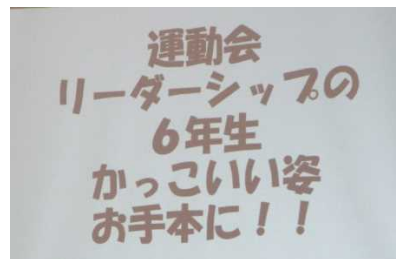 運動会
リーダーシップの
6年生
かっこいい姿
お手本に！！